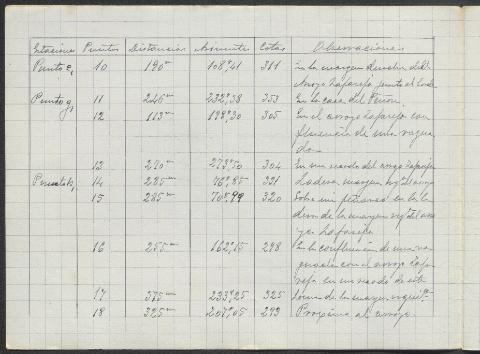 Estaciones Puntos Distancias Azimutes Cotas Observaciones
Punto e, 10 190 m 108º,41 311 En la margen derecha del
Arroyo Zafarejo junto al
Punto g, 11 246 m 232º,38 353 En la casa del Peñon.
12 113 m 199º,30 305 En el arroyo Zafarejo con
fluencia de una vagua
da.
13 270 m 273º,70 304 En un recodo del arroyo Zafarejo
14 285 m 76º,85 331 Ladera margen izqª del arroyo
15 235 m 70º,99 320 Sobre un peñasco en la la
dera de la margen izqª del arro
yo Zafarejo.
16 255 m 162º,15 298 En la confluencia de una va
guada con el arroyo Zafa
rejo en un recodo de este
17 375 m 233º,25 325 Loma de la margen izquierda
18 325 m 207º,05 293 Proxima al arroyo.